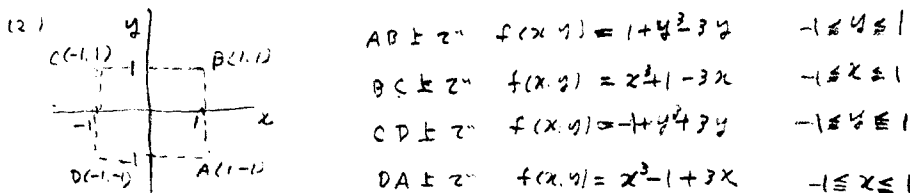 (2)
y
C(-1,1)
1
B(1,1)
-1
1
x
-1
D(-1,-1)
A(1-1)
AB上で f(x,y) = 1+y³-3y -1≦y≦1
BC上で f(x,y) = x³+1-3x -1≦x≦1
CD上で f(x,y)=-1+y³+3y -1≦y≦1
DA上で f(x,y)= x³-1+3x -1≦x≦1